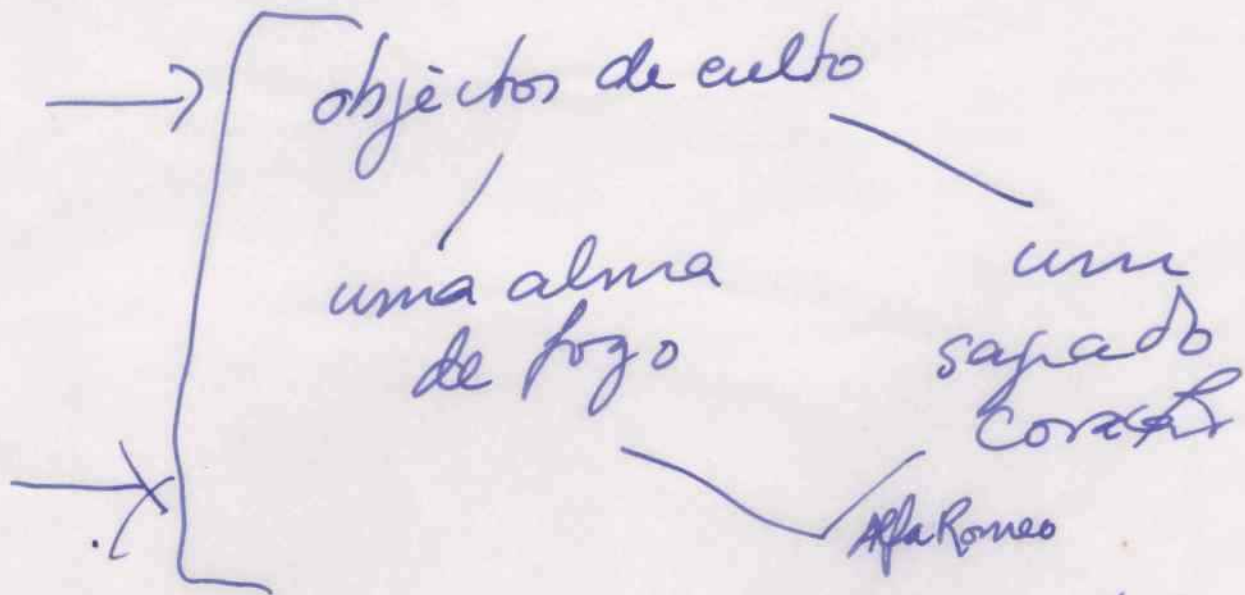 objectos de culto
uma alma
de fogo
um
sagrado
coração
Alfa Romeo